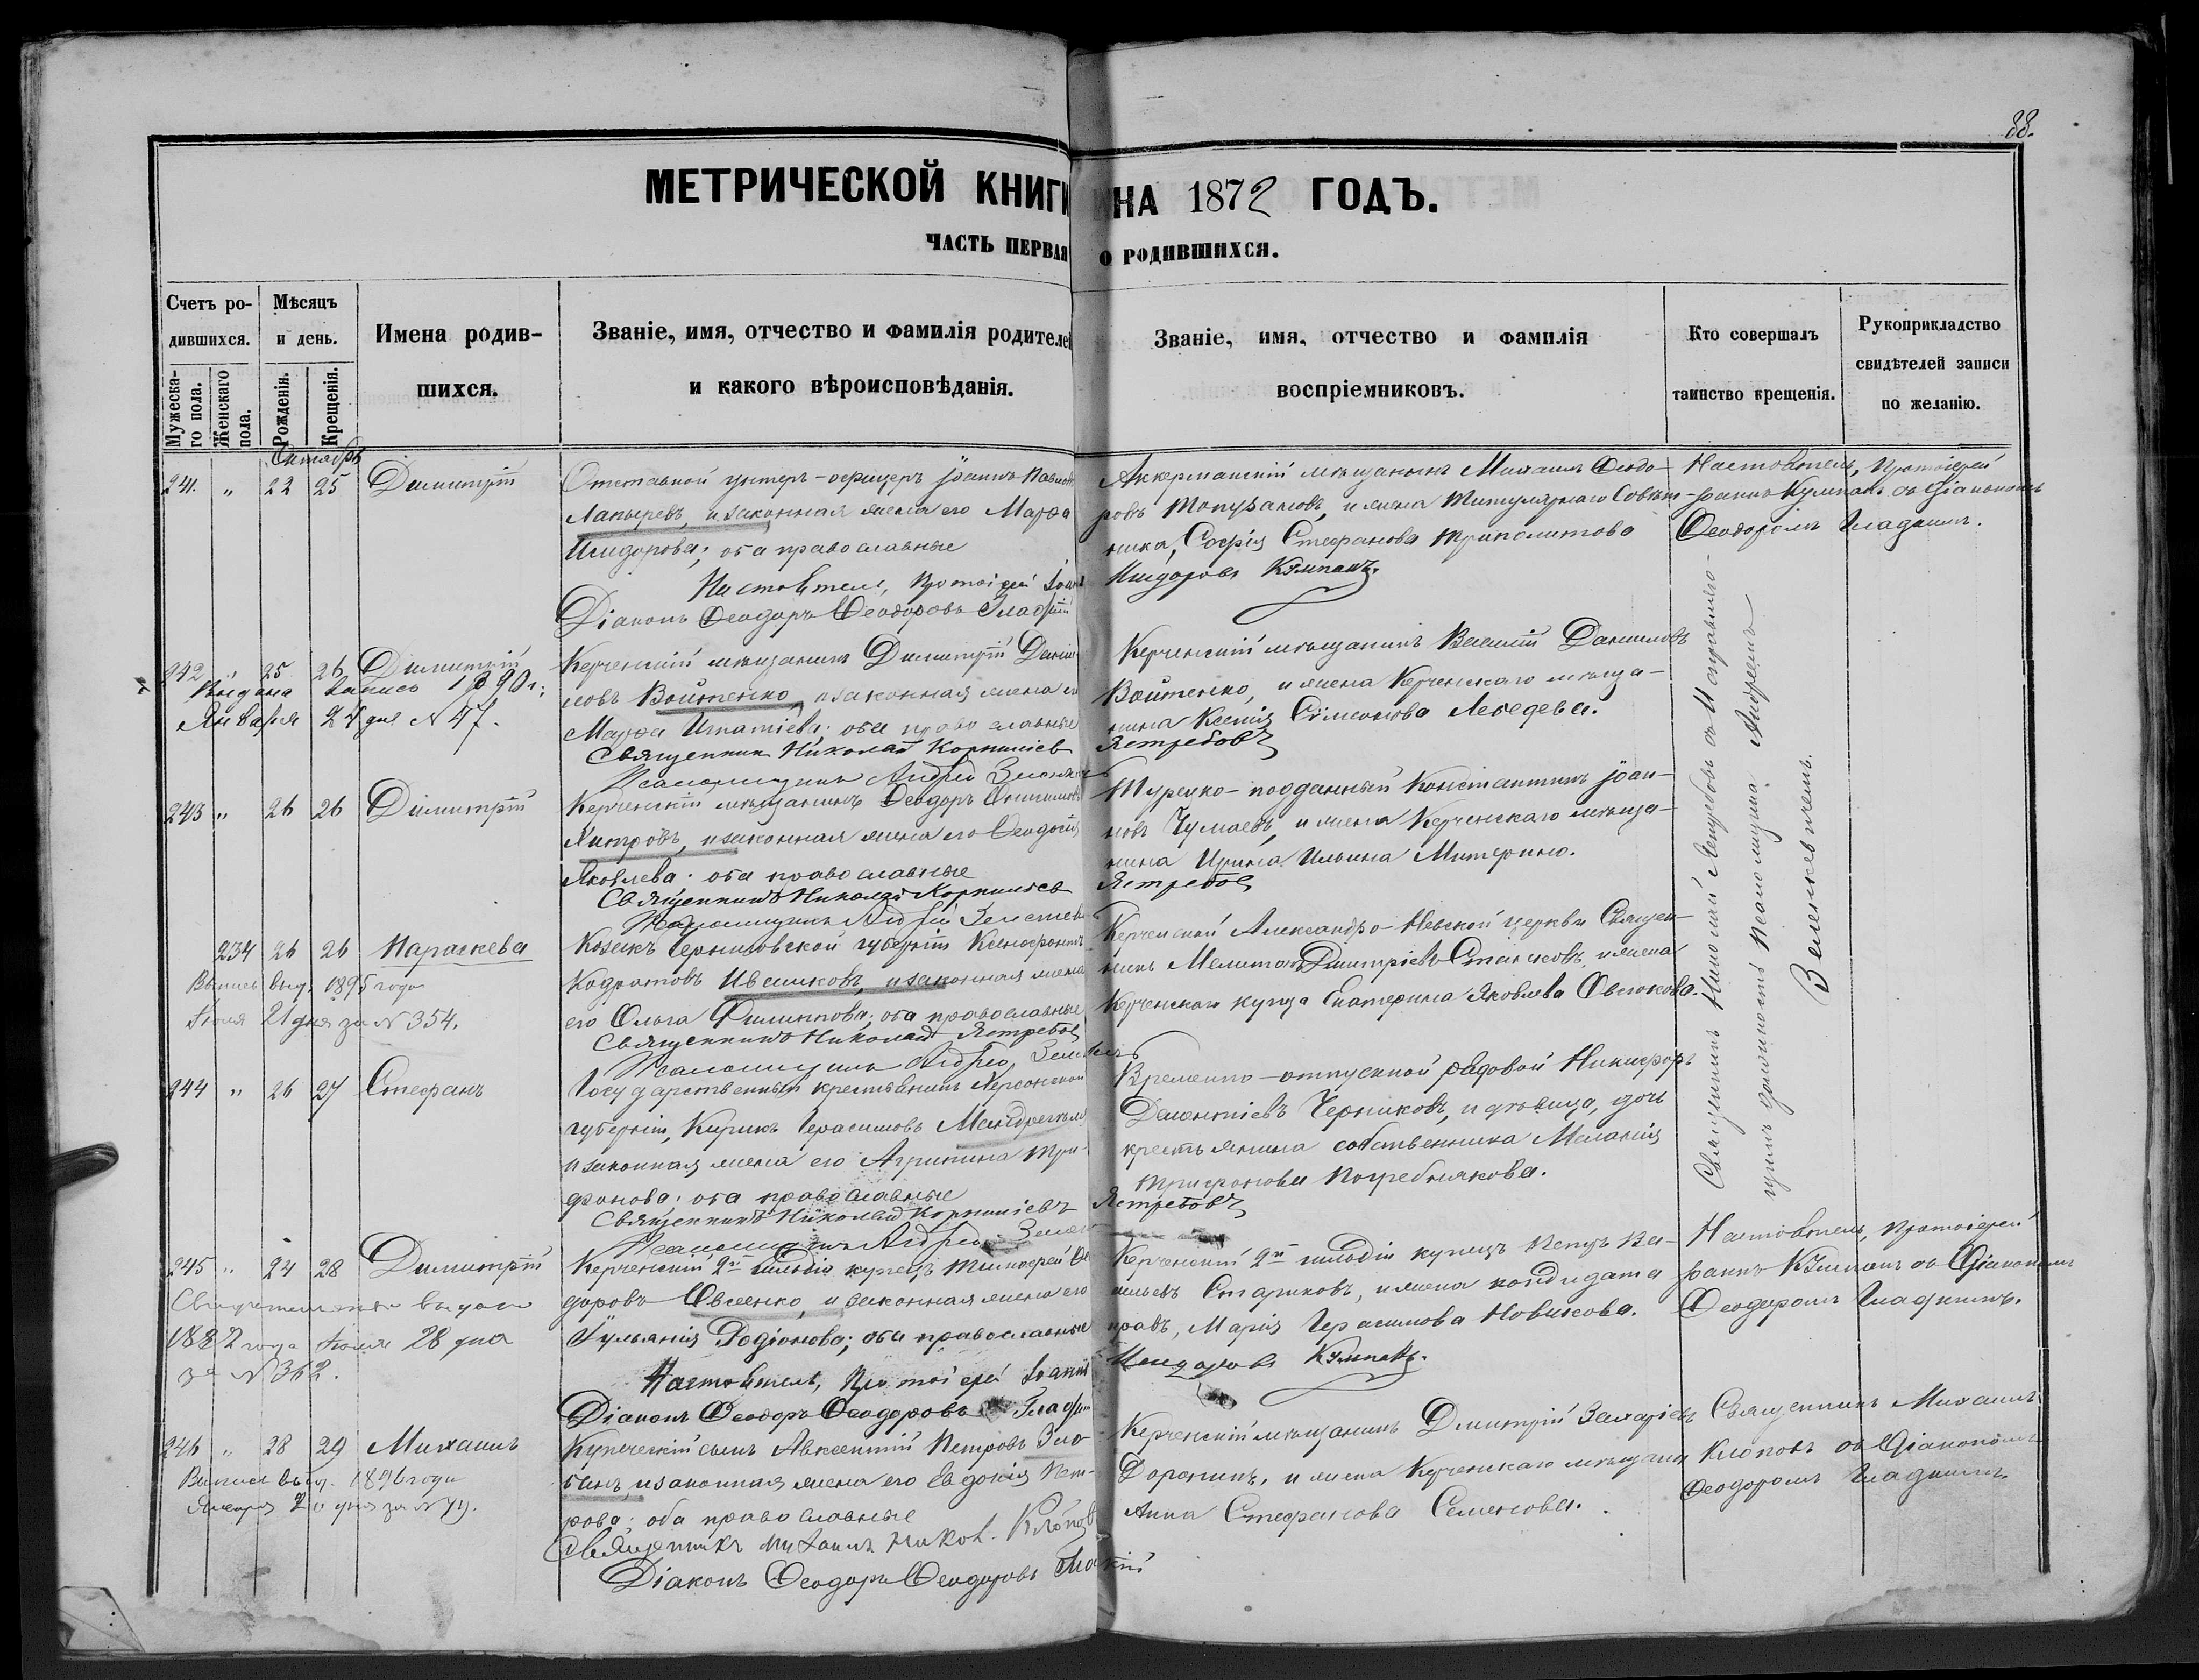 88.
МЕТРИЧЕСКОЙ КНИГИ НА 1872 ГОДЪ.
ЧАСТЬ ПЕРВАЯ О РОДИВШИХСЯ.
Счетъ родившихся.
Мужескаго пола.
Женскаго пола.
Мѣсяцъ и день.
Рожденія.
Крещенія.
Имена родившихся.
Званіе, имя, отчество и фамилія родителей
и какого вѣроисповѣданія.
Званіе, имя, отчество и фамилія
воспріемниковъ.
Кто совершалъ
таинство крещенія.
Рукоприкладство
свидѣтелей записи
по желанію.
Октябрь
241. " 22 25 Димитрій
Отставной унтеръ-офицеръ Іоаннъ
Лапыревъ, и законная жена его Марѳа
Исидорова; оба православные
Настоятель, Протоіерей
Діаконъ Ѳеодоръ Ѳеодоровъ Гладкій
Аккерманскій мѣщанинъ Михаилъ Ѳеодо-
ровъ и жена Титулярнаго Совѣт-
ника, Софія Стефанова
Исидоровъ Кумпанъ.
Настоятель, Протоіерей
Іоаннъ Кумпанъ съ Діакономъ
Ѳеодоромъ Гладкимъ.
242 " 25 26 Димитрій
Выдана запись 1890 г.
Января 24 дня № 47.
Керченскій мѣщанинъ Димитрій Дании-
ловъ Войтенко, и законная жена его
Марѳа Игнатіева; оба православные
Священникъ Николай Корниліевъ Ястребовъ
Псаломщикъ Андрей
Керченскій мѣщанинъ Василій Даниловъ
Войтенко, и жена Керченскаго мѣща-
нина Ксенія Симеонова Лебедева.
243 " 26 26 Димитрій
Керченскій мѣщанинъ Ѳеодоръ
и законная жена его Ѳеодосія
Яковлева; оба православные
Священникъ Николай Корниліевъ Ястребовъ
Псаломщикъ Андрей
Турецко-подданный Константинъ Іоан-
новъ Чумаевъ, и жена Керченскаго мѣща-
нина Ирина Ильина
234 26 26 Параскева
Выпись выд. 1895 года
Іюля 21 дня за № 354.
Козакъ Черниговской губерніи Ксенофонтъ
Кодратовъ Ивашковъ, и законная жена
его Ольга Филиппова; оба православные
Священникъ Николай Ястребовъ
Псаломщикъ Андрей
Керченской Александро-Невской церкви Священ-
никъ Мелитонъ Димитріевъ Станковъ, и жена
Керченскаго купца Екатерина Яковлева Овсюкова.
244 " 26 27 Стефанъ
Государственный крестьянинъ Херсонской
губерніи, Кирикъ Герасимовъ
и законная жена его Агрипина Три-
фонова; оба православные
Священникъ Николай Корниліевъ Ястребовъ
Псаломщикъ Андрей
Временно-отпускной рядовой Никифоръ
Дементіевъ Черниковъ, и дѣвица, дочь
крестьянина собственника Меланія
Трифонова Погребнякова.
Священникъ Николай Ястребовъ съ исправляю-
щимъ должность псаломщика Андреемъ
245 " 24 28 Димитрій
Свидетельство выдано
1882 года Іюля 28 дня
за № 362.
Керченскій 2й гильдіи купецъ Тимофей Ѳе-
доровъ Овсеенко, и законная жена его
Іульянія Родіонова; оба православные
Настоятель, Протоіерей Іоаннъ
Исидоровъ Кумпанъ.
Діаконъ Ѳеодоръ Ѳеодоровъ Гладкій
Керченскій 2й гильдіи купецъ Петръ Ва-
сильевъ Стариковъ, и жена кандидата
правъ, Марія Герасимова Новикова.
Настоятель, Протоіерей
Іоаннъ Кумпанъ съ Діакономъ
Ѳеодоромъ Гладкимъ.
246 " 28 29 Михаилъ
Выпись выд. 1896 года
Января
Купеческій сынъ Авксентій Петровъ Зло-
бинъ, и законная жена его Евдокія Пет-
рова; оба православные
Священникъ Михаилъ Клоповъ
Діаконъ Ѳеодоръ Ѳеодоровъ Гладкій
Керченскій мѣщанинъ Димитрій Захаріевъ
Доронинъ, и жена Керченскаго мѣщанина
Анна Стефанова Семенова.
Священникъ Михаилъ
Клоповъ съ Діакономъ
Ѳеодоромъ Гладкимъ